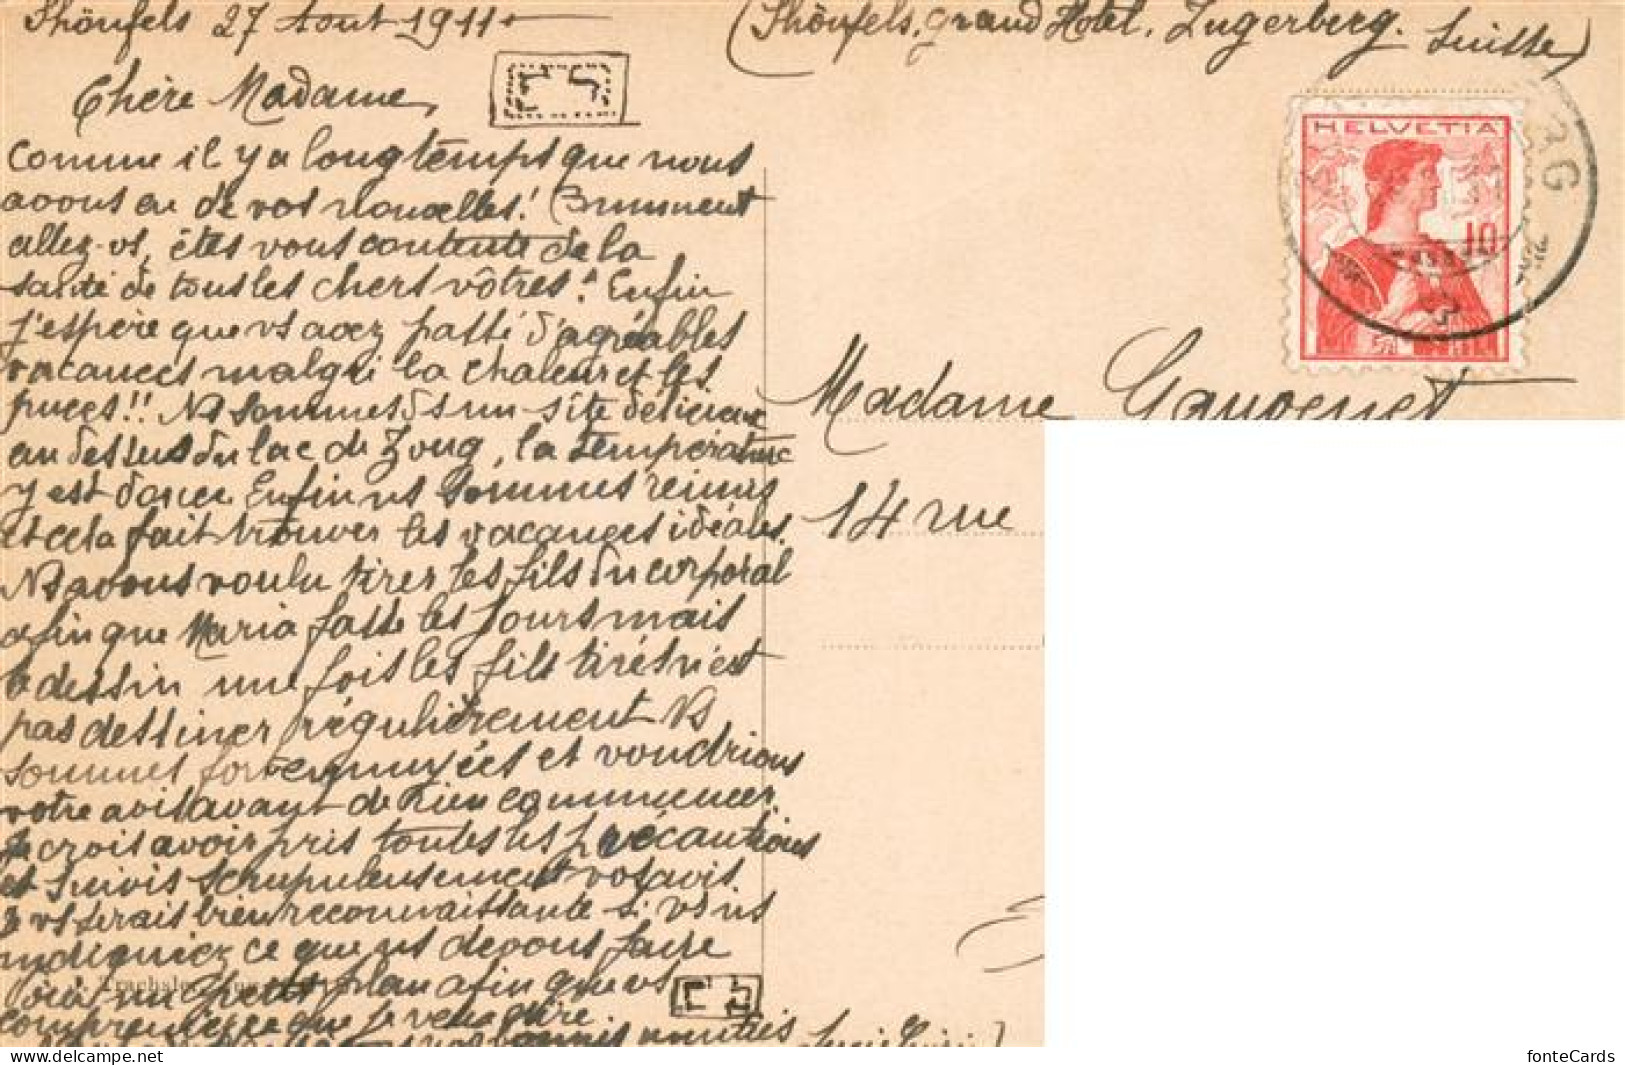 Shönfels 27 Aout 1911
(Shönfels, grand Hotel, Zugerberg. Suisse)
Chère Madame,
HELVETIA
10
comme il y a longtemps que nous
avons eu de vos nouvelles!
allez-vs, êtes vous contente de la
santé de tous les chers vôtres? Enfin
j'espère que vs avez passé d'agréables
vacances malgré la chaleur et les
puces!! Ns sommes ds un site délicieux
au dessus du lac de Zoug, la température
y est douce Enfin ns sommes réunis
et cela fait trouver les vacances idéales.
Ns avons voulu tirer les fils du corporal
afin que Maria fasse les jours mais
le dessin une fois les fils tirés n'est
pas dessiner régulièrement Ns
sommes fort ennuyées et voudrions
votre avis avant de rien commencer.
Je crois avoir pris toutes les précautions
et suivis scrupuleusement vos avis.
Je vs serais bien reconnaissante si vs ns
indiquiez ce que ns devons faire
un petit plan afin que vs
compreniez ce que je veux dire
Madame
14 rue
fonteCards